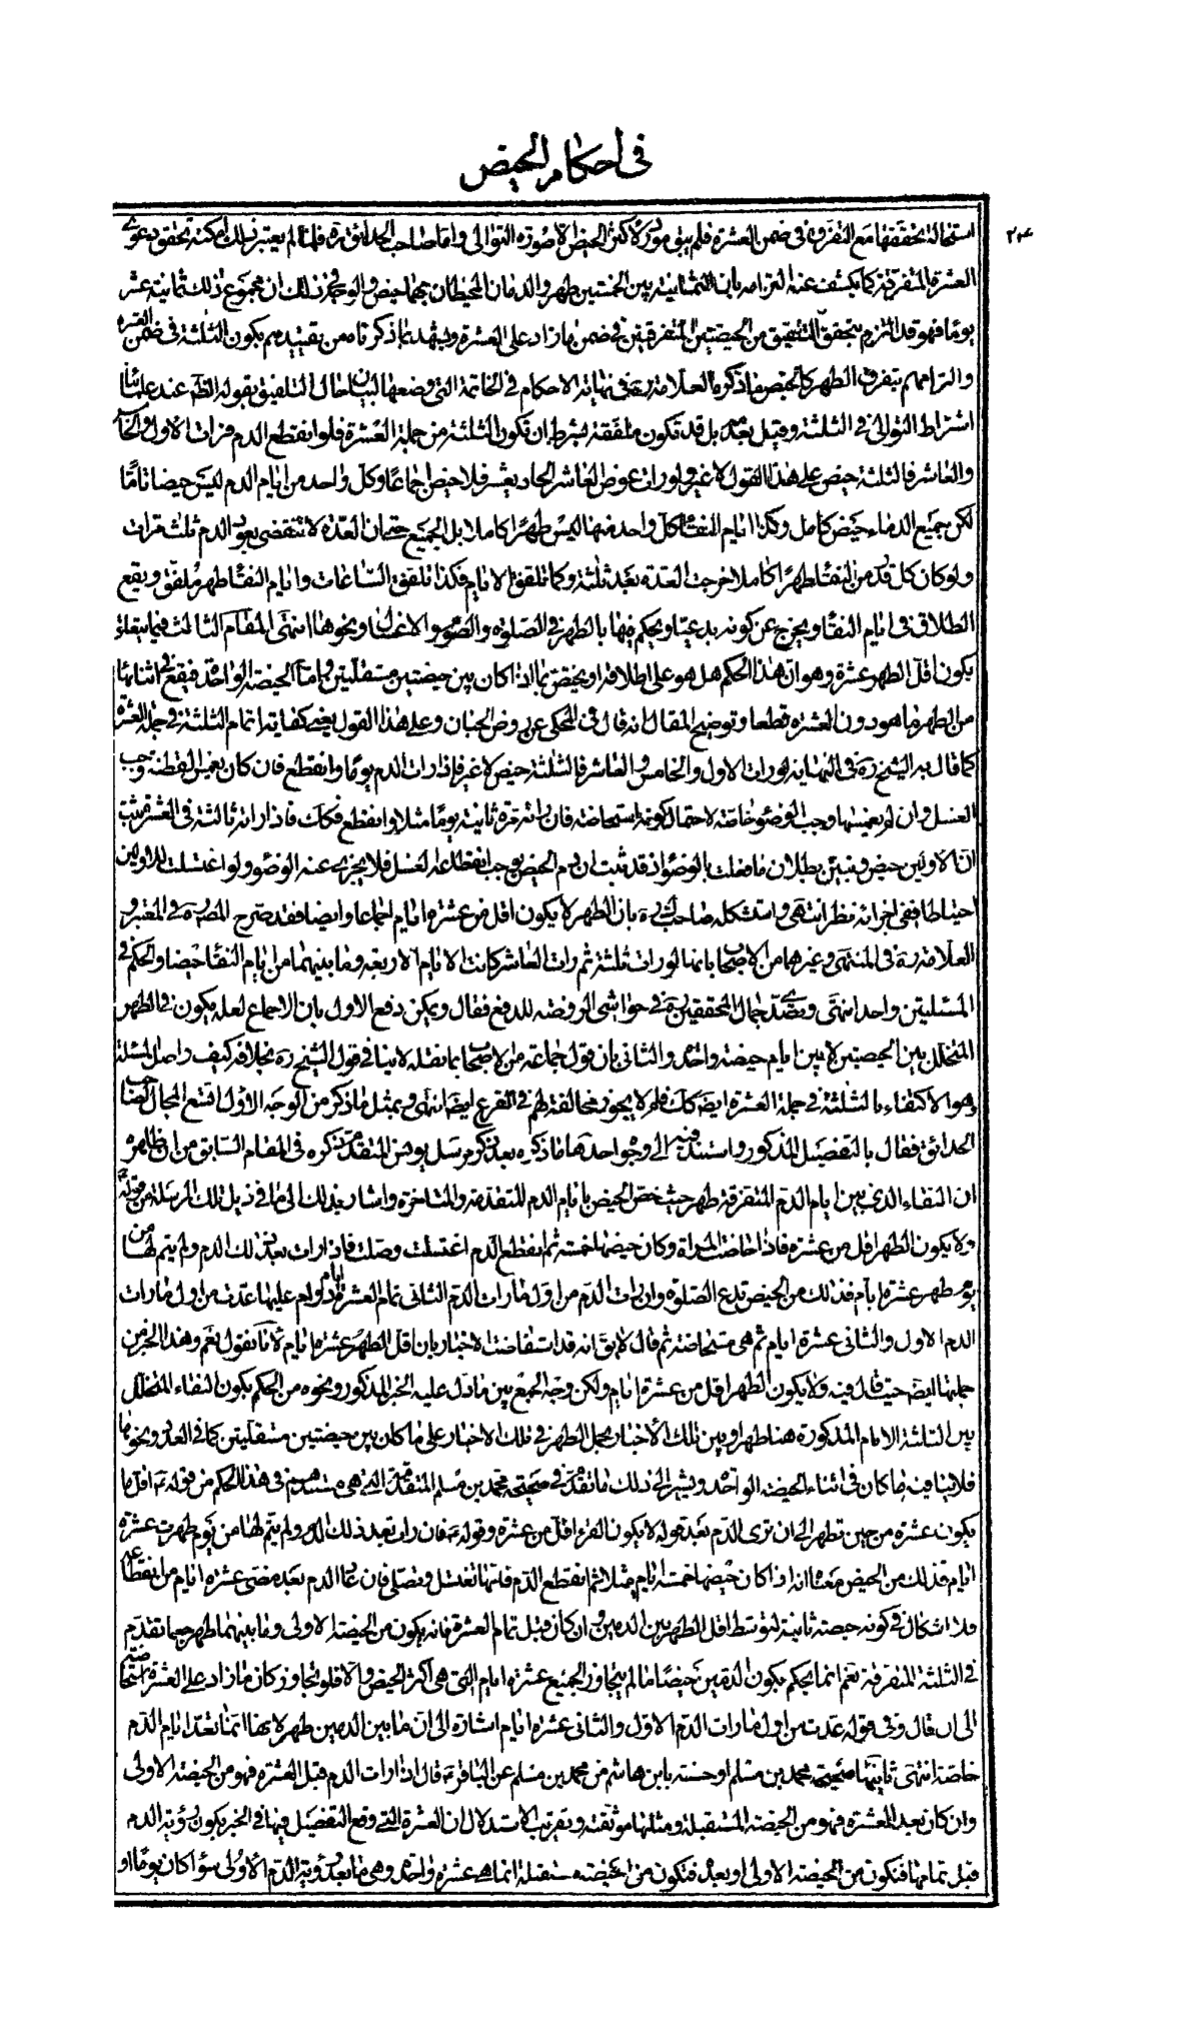 في احكام الحيض
٢٠٤
استحالة تحققها مع التفرق في ضمن العشرة فلم يبق مورد لاكثر الحيض الا صورة التوالي واما صاحب الحدائق ره فلما لم يعتبر ذلك امكنه تحقق دعوى
العشرة المتفرقة كما يكشف عنه التزامه بان الثمانية بين الخمستين طهر والدمان المحيطان بهما حيض والوجه في ذلك ان مجموع ذلك ثمانية عشر
يوما فهو قد التزم بتحقق التلفيق من الحيضتين المتفرقتين في ضمن ما زاد على العشرة ويشهد بما ذكرناه من تقييدهم بكون الثلثة في ضمن العشرة
والتزامهم بتفرق الطهر كالحيض ما ذكره العلامة ره في نهاية الاحكام في الخاتمة التي وضعها لبيان حال التلفيق بقوله الظ عند علمائنا
اشتراط التوالي في الثلثة وقيل بعدمه بل قد تكون ملفقة بشرط ان تكون الثلثة من جملة العشرة فلو انقطع الدم فرات الاول والخامس
والعاشر فالثلثة حيض على هذا القول لا غير ولو رات عوض العاشر الحادي عشر فلا حيض اجماعا وكل واحد من ايام الدم ليس حيضا تاما
لكن جميع الدماء حيض كامل وكذا ايام النقاء كل واحد منها ليس طهرا كاملا بل الجميع حتى ان العدة لا تنقضي بعود الدم ثلث مرات
ولو كان كل قدر من النقاء طهرا كاملا خرجت العدة بعد ثلثة وكما تلفق الايام فكذا تلفق الساعات وايام النقاء طهر ملفق ويقع
الطلاق في ايام النقاء ويخرج عن كونه بدعيا ويحكم فيها بالطهر في الصلوة والصوم والاغتسال ونحوها انتهى المقام الثالث فيما يتعلق
بكون اقل الطهر عشرة وهو ان هذا الحكم هل هو على اطلاقه او يختص بما اذا كان بين حيضتين مستقلتين واما الحيضة الواحدة فيقع في اثنائها
من الطهر ما هو دون العشرة قطعا وتوضيح المقال انه قال في المحكي عن روض الجنان وعلى هذا القول يعني كفاية اتمام الثلثة في جملة العشرة
كما قال به الشيخ ره في النهاية لو رات الاول والخامس والعاشر فالثلثة حيض لا غير فاذا رات الدم يوما وانقطع فان كان يغمس القطنة وجب
الغسل وان لم يغمسها وجب الوضوء خاصة لاحتمال كونه استحاضة فان راته مرة ثانية يوما مثلا وانقطع فكك فاذا راته ثالثة في العشرة ثبت
ان الاولين حيض وتبين بطلان ما فعلت بالوضوء اذ قد ثبت ان دم الحيض يوجب انقطاعه الغسل فلا يجزي عنه الوضوء ولو اغتسلت للاولين
احتياطا ففي اجزائه نظر انتهى واستشكله صاحب ره بان الطهر لا يكون اقل من عشرة ايام اجماعا وايضا فقد صرح المص ره في المعتبر و
العلامة ره في المنتهى وغيرهما من الاصحاب بانها لو رات ثلثة ثم رات العاشر كانت الايام الاربعة وما بينهما من ايام النقاء حيضا والحكم في
المسئلتين واحد انتهى وتصدى جمال المحققين ره في حواشي الروضة للدفع فقال ويمكن دفع الاول بان الاجماع لعله يكون في الطهر
المتخلل بين الحيضتين لا بين ايام حيضة واحدة والثاني بان قول جماعة من الاصحاب بما نقله لا ينافي قول الشيخ ره بخلافه كيف واصل المسئلة
وهو الاكتفاء بالثلثة في جملة العشرة ايضا كك فلم لا يجوز مخالفته لهم في التفرع ايضا انتهى وبمثل ما ذكر من الوجه الاول اقنع المجال لصاحب
الحدائق فقال بالتفصيل المذكور واستند فيه الى وجوه احدها ما ذكره بعد ذكر مرسل يونس المتقدم ذكره في المقام السابق من ان ظاهره
ان النقاء الذي بين ايام الدم المتفرقة طهر حيث خص الحيض بايام الدم المتقدمة والمتاخرة واشار بذلك الى ما في ذيل تلك المرسلة من قوله
ولا يكون الطهر اقل من عشرة فاذا حاضت المراة وكان حيضها خمسة ثم انقطع الدم اغتسلت وصلت فاذا رات بعد ذلك الدم ولم يتم لها من
يوم طهر عشرة ايام فذلك من الحيض تدع الصلوة وان رات الدم من اول ما رات الدم الثاني تمام العشرة ايام ودام عليها عدت من اول ما رات
الدم الاول والثاني عشرة ايام ثم هي مستحاضة ثم قال لا يق انه قد استفاضت الاخبار بان اقل الطهر عشرة ايام لانا نقول نعم وهذا الخبر من
جملتها ايضا حيث قال فيه ولا يكون الطهر اقل من عشرة ايام ولكن وجه الجمع بين ما دل عليه الخبر المذكور ونحوه من الحكم بكون النقاء المتخلل
بين الثلثة الايام المذكورة هنا طهرا وبين تلك الاخبار بحمل الطهر في تلك الاخبار على ما كان بين حيضتين مستقلتين كما في العدد ونحوها
فلا ينافيه ما كان في اثناء الحيضة الواحدة ويشير الى ذلك ما تقدم في صحيحة محمد بن مسلم المتقدمة التي هي مستندهم في هذا الحكم من قوله ع اقل ما
يكون عشرة من حين تطهر الى ان ترى الدم بعد قوله لا يكون القرء اقل من عشرة وقوله ع فان رات بعد ذلك الدم ولم يتم لها من يوم طهرت عشرة
ايام فذلك من الحيض معناه انه اذا كان حيضها خمسة ايام مثلا ثم انقطع الدم فانها تغتسل وتصلي فان عاد الدم بعد مضي عشرة ايام من انقطاعه
فلا اشكال في كونه حيضة ثانية لتوسط اقل الطهر بين الدمين وان كان قبل تمام العشرة فانه يكون من الحيضة الاولى وما بينهما طهر حسبما تقدم
في الثلثة المتفرقة نعم انما يحكم بكون الدمين حيضا ما لم يتجاوز الجميع عشرة ايام التي هي اكثر الحيض والا فلو تجاوز كان ما زاد على العشرة استحاضة
الى ان قال وفي قوله عدت من اول ما رات الدم الاول والثاني عشرة ايام اشارة الى ان ما بين الدمين طهر لانها انما تعد ايام الدم
خاصة انتهى ثانيها صحيحة محمد بن مسلم او حسنته بابن هاشم عن محمد بن مسلم عن الباقر ع قال اذا رات الدم قبل العشرة فهو من الحيضة الاولى
وان كان بعد العشرة فهو من الحيضة المستقبلة ومثلها موثقته وتقريب الاستدلال ان العشرة التي وقع التفصيل فيها في الخبر بكون رؤية الدم
قبل تمامها فتكون من الحيضة الاولى او بعدها فتكون من حيضة مستقبلة انما هي عشرة واحدة وهي ما بعد رؤية الدم الاولى سواء كان يوما او